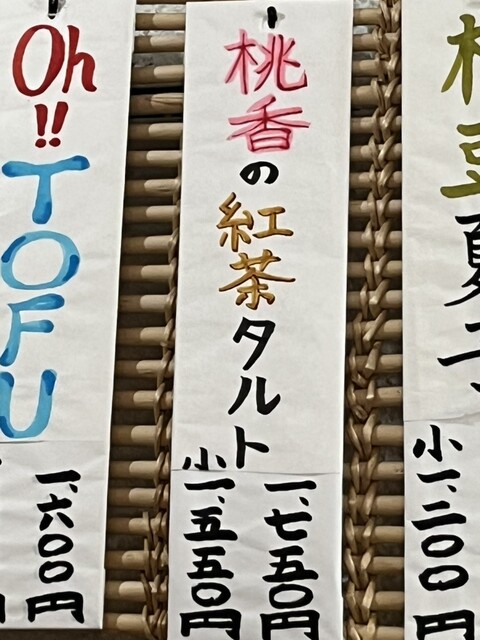 Oh!!
TOFU
一、六〇〇円
桃香の紅茶タルト
一、七五〇円
小一、五五〇円
豆
夏
小一、二〇〇円